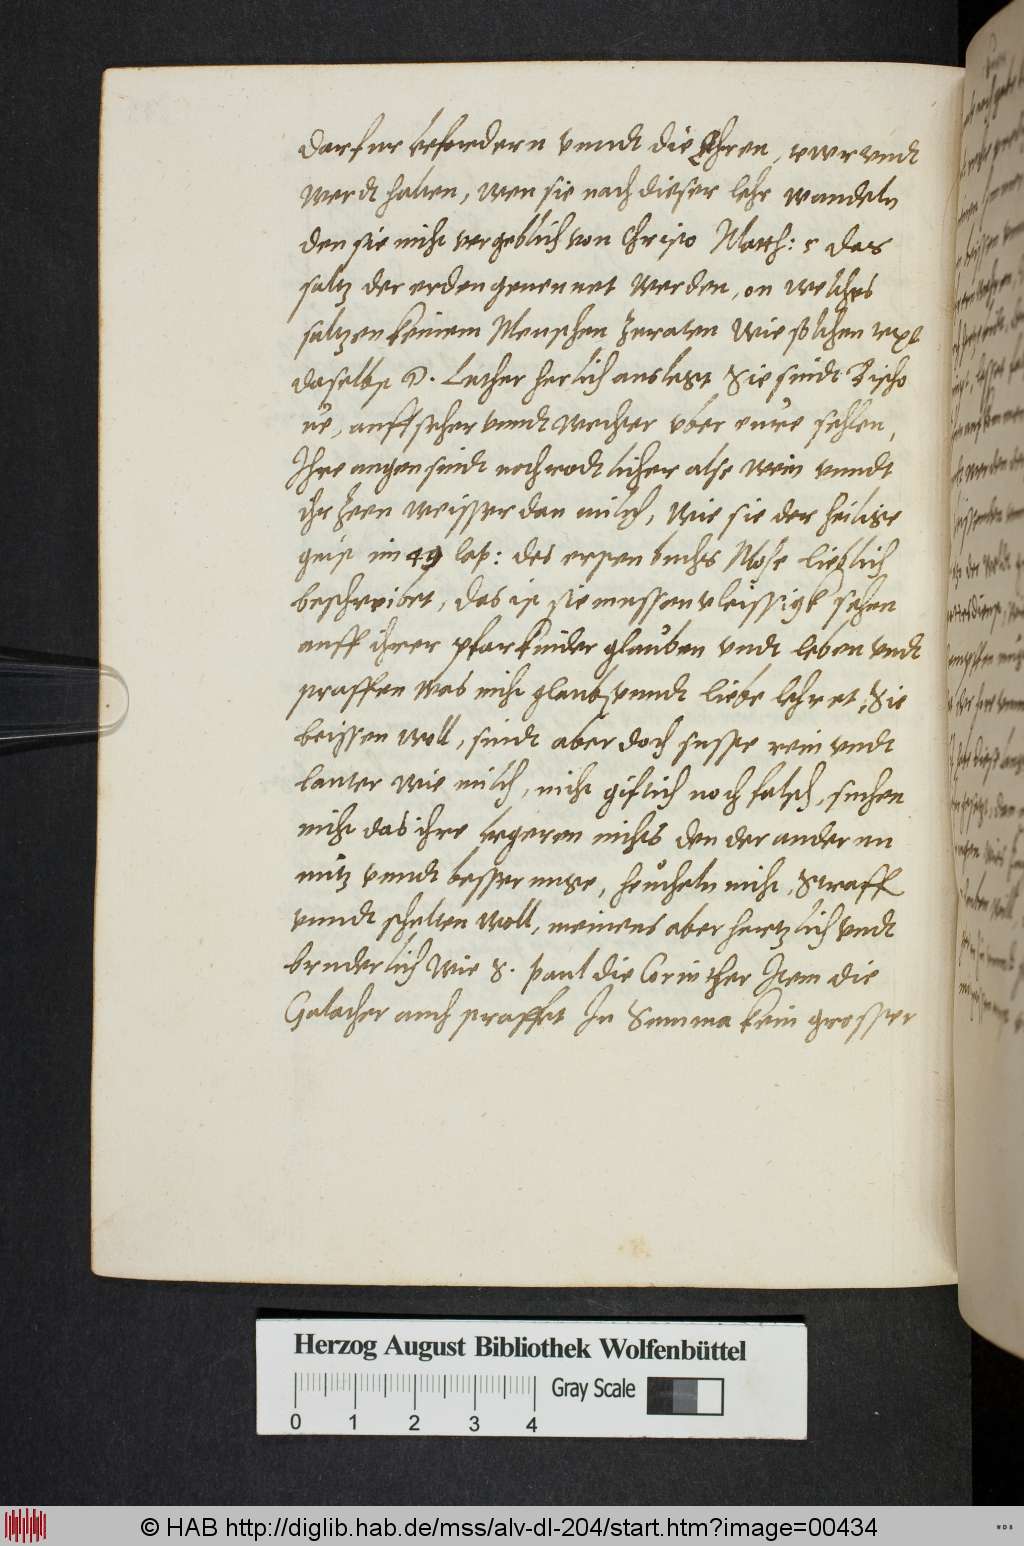 darfur befordern vnndt die Ehren, ewr vndt
werdt halten, wen sie nach dieser lehr wandeln
den sie nicht vergeblich von Christo Matth: 5 das
saltz der erden genennet werden, on welches
saltzen keinem Menschen zuraten wie solchen text
daselbst D. Luther herlich ausleget Sie sindt Bischo
ue, auffseher vnndt wechter vber eure sehlen,
Ihre augen sindt noch rodtlicher alse wein vnndt
ihr Zeen weisser dan milch, wie sie der heilige
geist im 49 Cap: des ersten buchs Mose lieblich
beschreibet, das ist sie mussen vleissigk sehen
auff ihrer pfarkinder glauben vndt leben vndt
straffen was nicht glaubt vnndt liebe lehret, Sie
beissen woll, sindt aber doch susse rein vndt
lauter wie milch, nicht giftich noch falsch, suchen
nicht das ihre begeren nichts den der ander nu
nutz vnndt besserunge, heucheln nicht, Straff
vnndt schelten woll, meinens aber hertzlich vndt
bruderlich wie S. Paul die Corinther Item die
Galather auch straffet In Summa kein grosser
Herzog August Bibliothek Wolfenbüttel
Gray Scale
0 1 2 3 4
© HAB http://diglib.hab.de/mss/alv-dl-204/start.htm?image=00434